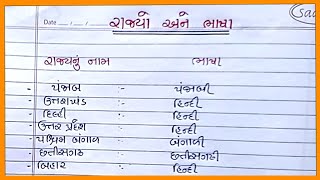 Date
રાજ્યો અને ભાષા
રાજ્યનું નામ ભાષા
- પંજાબ :- પંજાબી
- ઉત્તરાખંડ :- હિન્દી
- દિલ્હી :- હિન્દી
- ઉત્તર પ્રદેશ :- હિન્દી
- પશ્ચિમ બંગાળ :- બંગાળી
- છત્તીસગઢ :- છત્તીસગઢી
- બિહાર :- હિન્દી